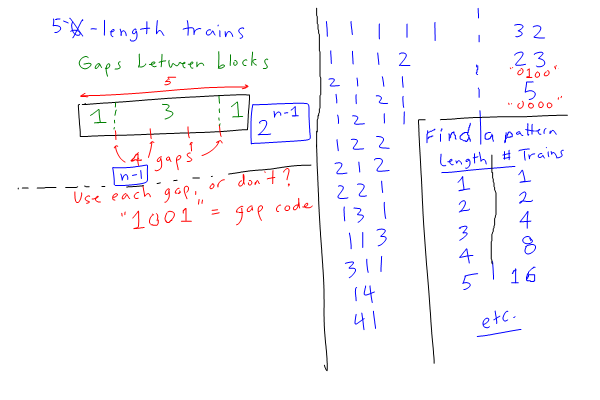 5 -length trains
Gaps between blocks
5
1 3 1
2^n-1
4 gaps
n-1
Use each gap, or don't?
"1001" = gap code
1 1 1 1 1
1 1 1 2
2 1 1 1
1 1 2 1
1 2 1 1
1 2 2
2 1 2
2 2 1
1 3 1
1 1 3
3 1 1
1 4
4 1
3 2
2 3
"0100"
5
"0000"
Find a pattern
Length # Trains
1 1
2 2
3 4
4 8
5 16
etc.